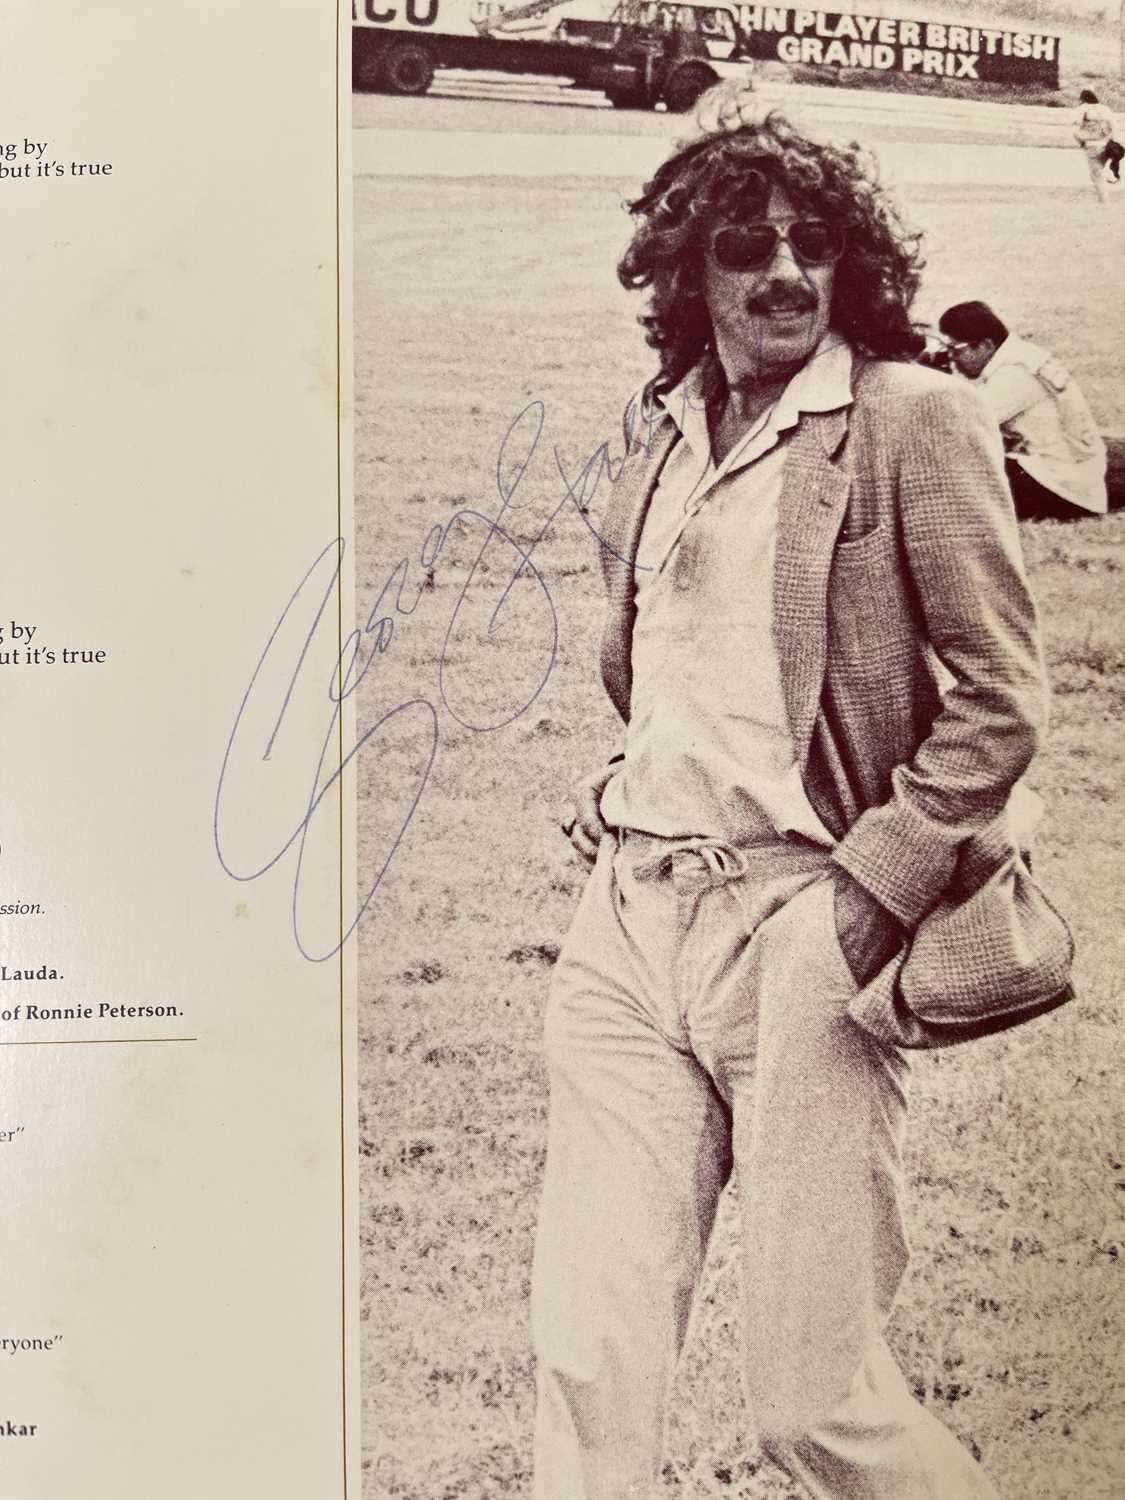 ng by
but it's true
g by
ut it's true
)
ssion.
Lauda.
of Ronnie Peterson.
er"
eryone"
nkar
ACO
TEX
OHN PLAYER BRITISH
GRAND PRIX
George Harrison